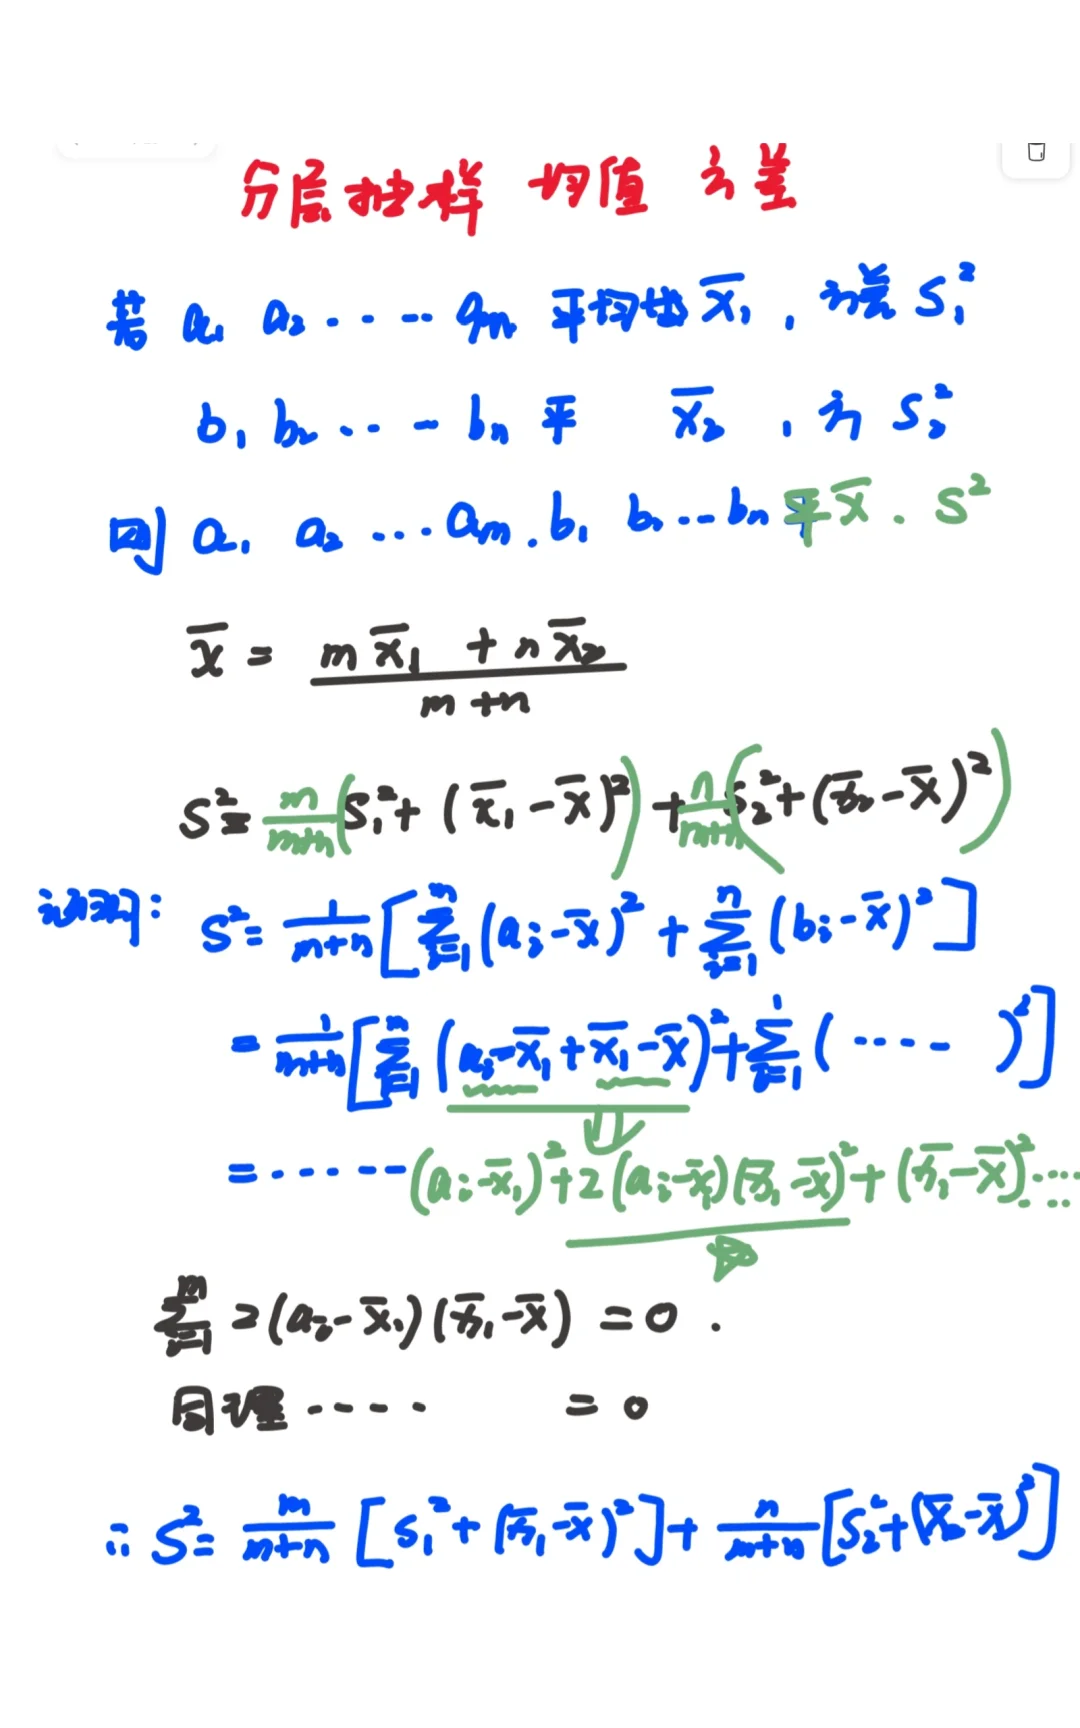 分层抽样 均值 方差
若 a₁ a₂ ‥‥‥ aₘ 平均数 x̄₁ , 方差 S₁²
b₁ b₂ ‥‥‥ bₙ 平 x̄₂ , 方 S₂²
则 a₁ a₂ ‥‥ aₘ . b₁ b₂ ‥‥ bₙ 平 x̄ . S²
x̄ = (m x̄₁ + n x̄₂)/(m+n)
S² = m/(m+n) (S₁² + (x̄₁ - x̄)²) + n/(m+n) (S₂² + (x̄₂ - x̄)²)
证明: S² = 1/(m+n) [∑ᵢ₌₁ᵐ (aᵢ - x̄)² + ∑ᵢ₌₁ⁿ (bᵢ - x̄)²]
= 1/(m+n) [∑ᵢ₌₁ᵐ (aᵢ - x̄₁ + x̄₁ - x̄)² + ∑ᵢ₌₁ ( ‥‥ )²]
= ‥‥‥ (aᵢ - x̄₁)² + 2(aᵢ - x̄₁)(x̄₁ - x̄)² + (x̄₁ - x̄)² ‥‥
∑ᵢ₌₁ᵐ 2(aᵢ - x̄₁)(x̄₁ - x̄) = 0 .
同理 ‥‥ = 0
∴ S² = m/(m+n) [S₁² + (x̄₁ - x̄)²] + n/(m+n) [S₂² + (x̄₂ - x̄)²]